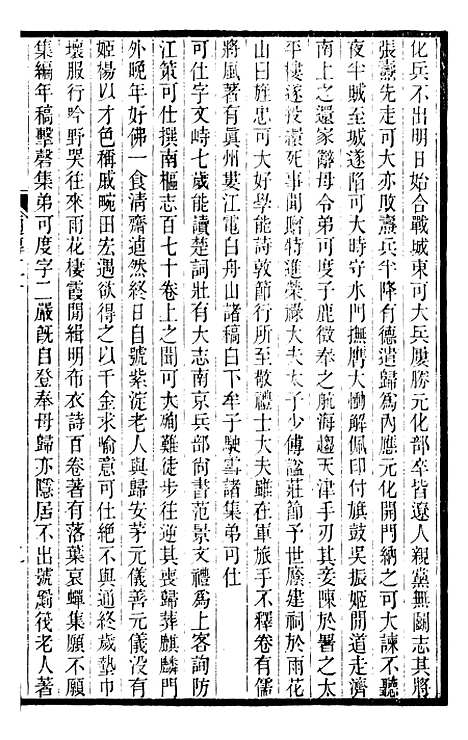 化兵不出明日始合戰城東可大兵屢勝元化部卒皆遼人親黨無鬭志其將
張燾先走可大亦敗燾兵半降有德遣歸為內應元化開門納之可大諫不聽
夜半賊至城遂陷可大時守水門撫膺大慟解佩印付旗鼓吳振姬間道走濟
南上之還家辭母令弟可度子鹿徵奉之航海趨天津手刃其妾陳於署之太
平樓遂投繯死事聞贈特進榮祿大夫太子少傅諡莊節予世廕建祠於雨花
山曰旌忠可大好學能詩敦節行所至敬禮士大夫雖在軍旅手不釋卷有儒
將風著有眞州婁江電白舟山諸稿白下牟子駛雪諸集弟可仕
可仕字文峙七歲能讀楚詞壯有大志南京兵部尙書范景文禮為上客詢防
江策可仕撰南樞志百七十卷上之聞可大殉難徒步往逆其喪歸葬麒麟門
外晚年好佛一食清齋逌然終日自號紫淀老人與歸安茅元儀善元儀沒有
姬楊以才色稱戚畹田宏遇欲得之以千金求喻意可仕絕不與通終歲墊巾
壞服行吟野哭往來雨花棲霞間緝明布衣詩百卷著有落葉哀蟬集願不願
集編年稿擊磬集弟可度字二嚴旣自登奉母歸亦隱居不出號黝筏老人著